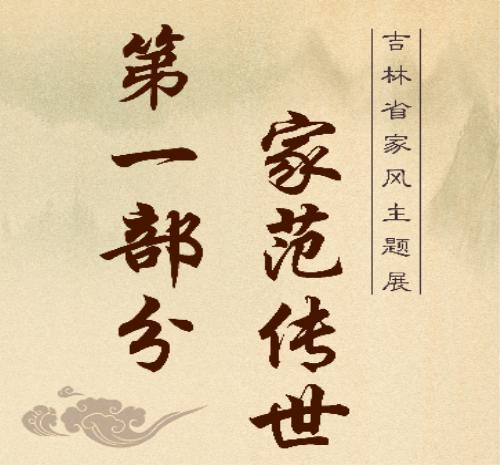 吉林省家风主题展
家范传世
第一部分